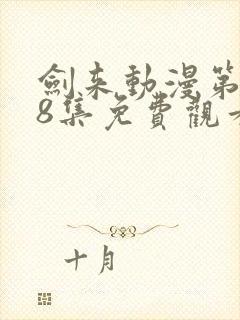 劍来動漫第
8集免費觀
十月